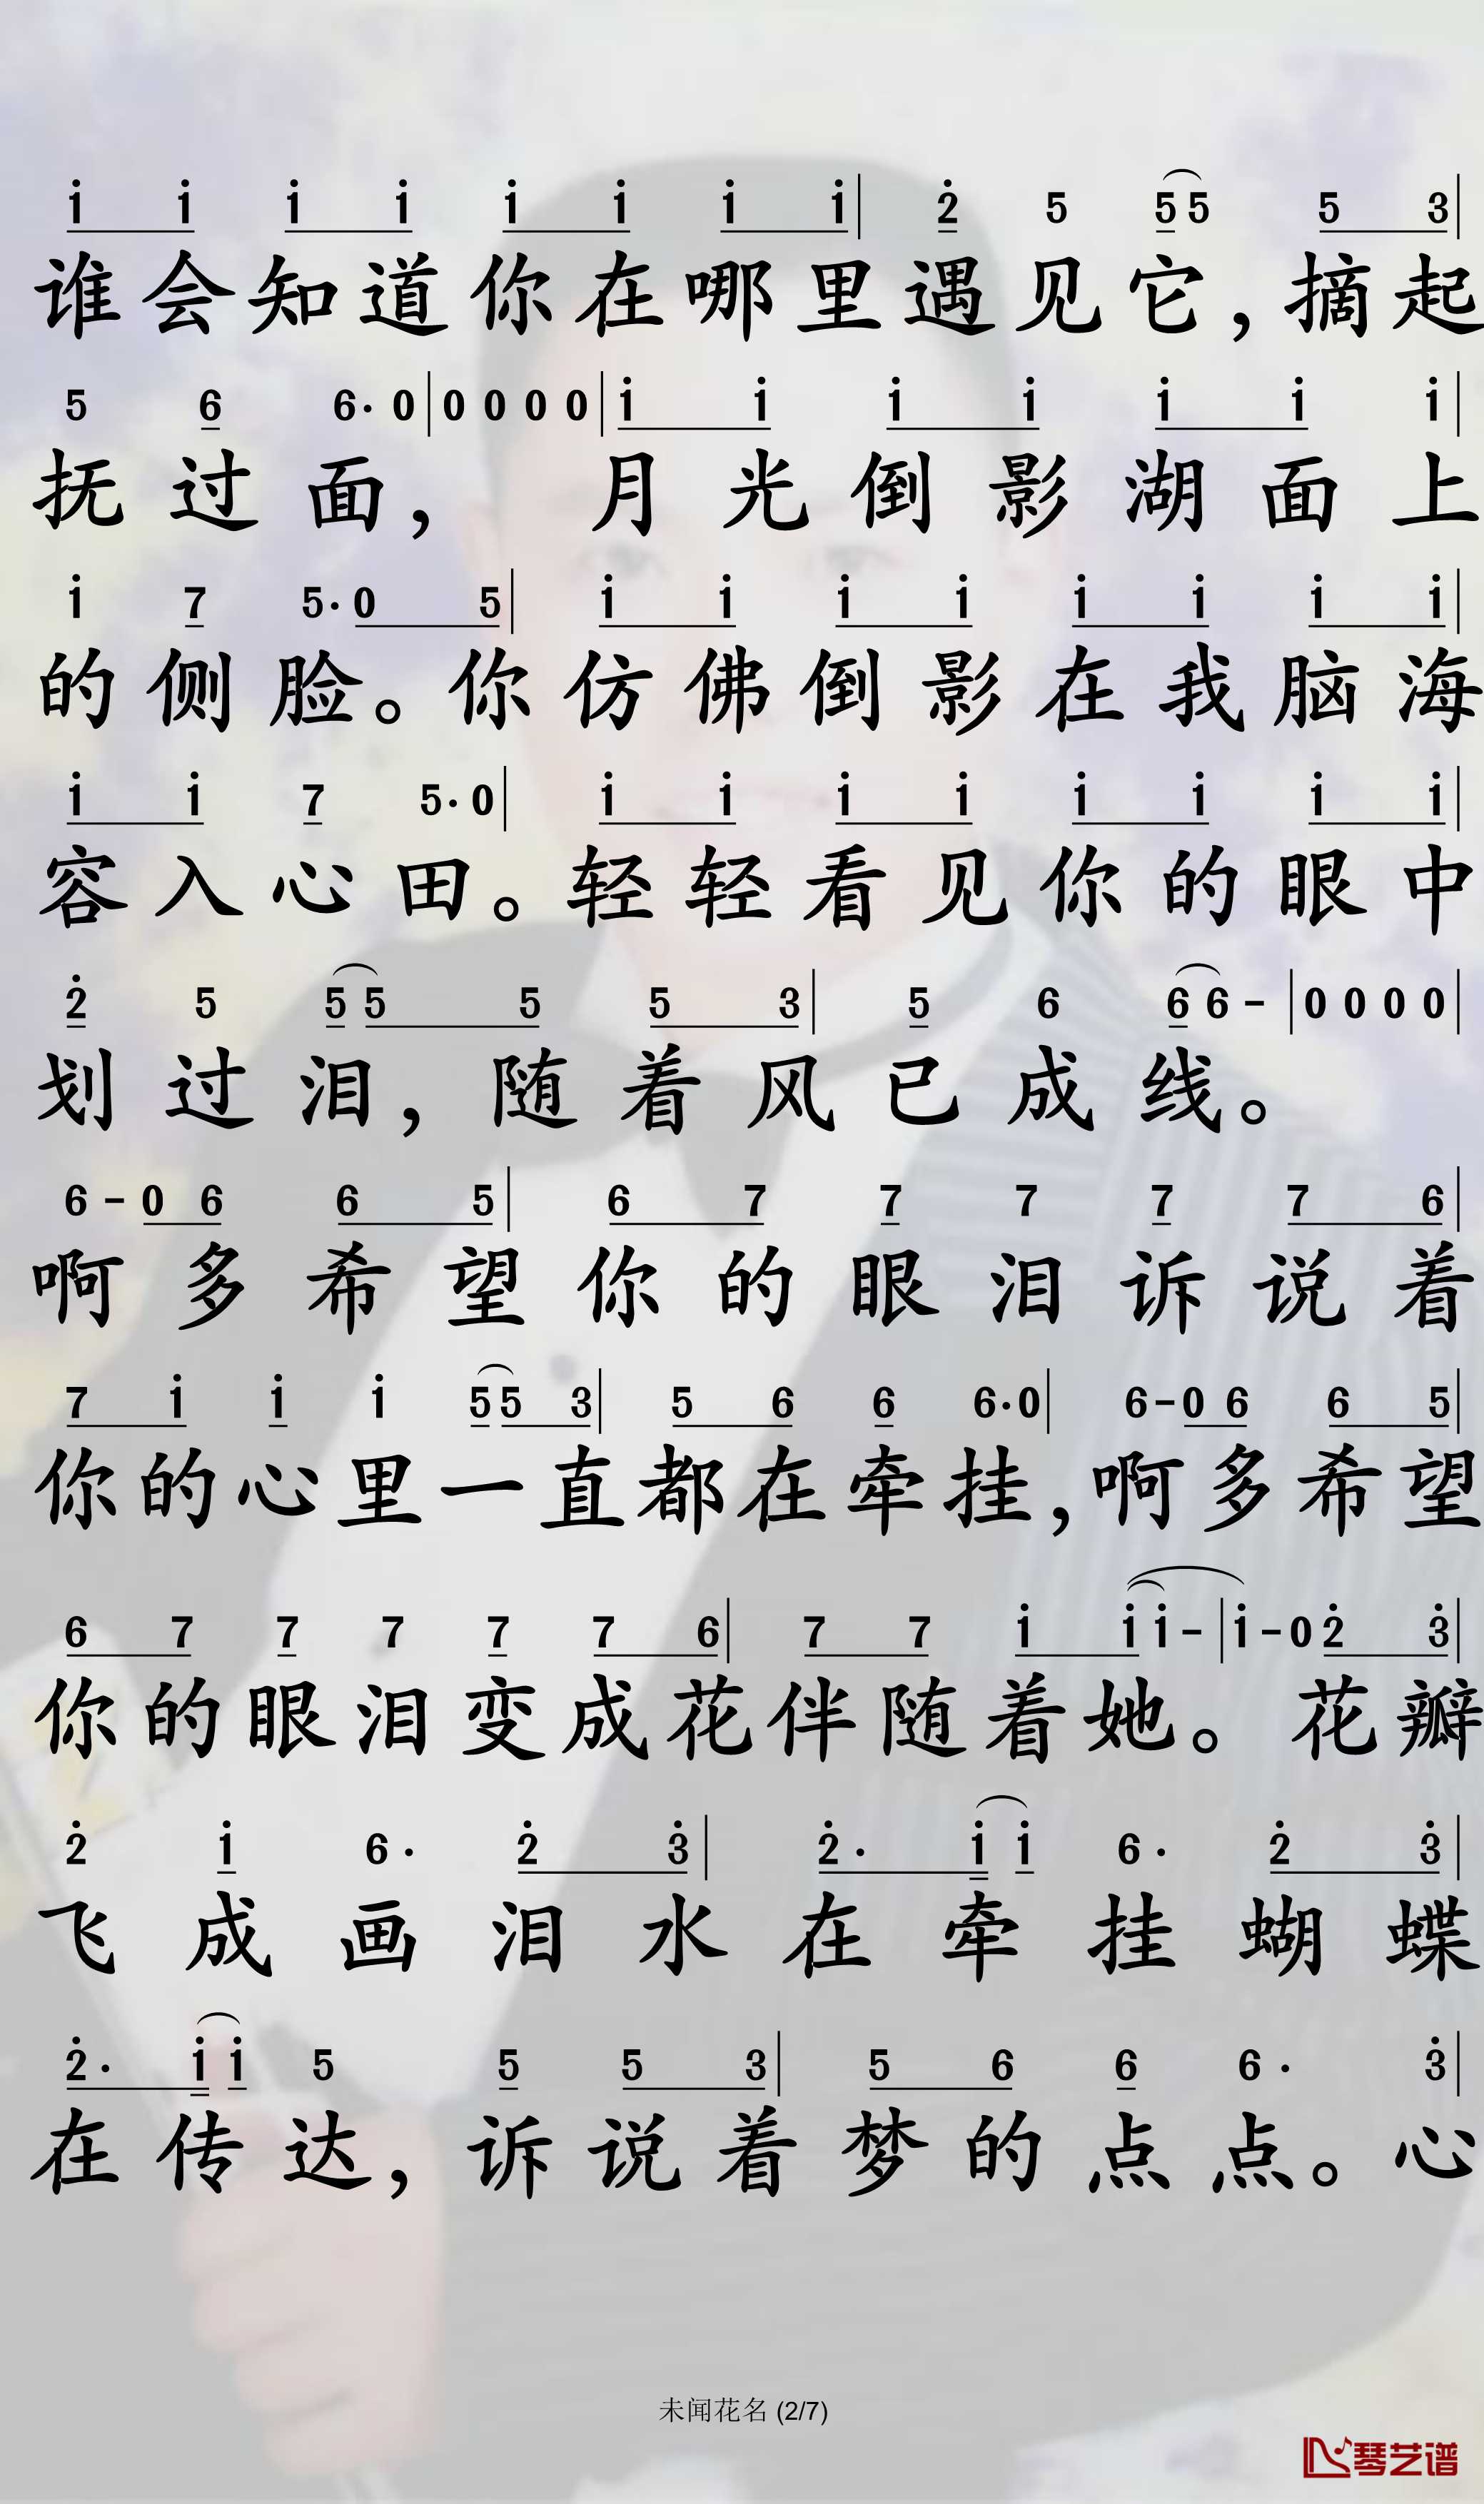 i i i i i i i i | 2 5 5 5 5 3 |
谁会知道你在哪里遇见它，摘起
5 6 6· 0 | 0 0 0 0 | i i i i i i i |
抚过面，月光倒影湖面上
i 7 5· 0 5 | i i i i i i i i |
的侧脸。你仿佛倒影在我脑海
i i 7 5· 0 | i i i i i i i i |
容入心田。轻轻看见你的眼中
2 5 5 5 5 5 3 | 5 6 6 6 - | 0 0 0 0 |
划过泪，随着风已成线。
6 - 0 6 6 5 | 6 7 7 7 7 7 6 |
啊多希望你的眼泪诉说着
7 i i i 5 5 3 | 5 6 6 6· 0 | 6 - 0 6 6 5 |
你的心里一直都在牵挂，啊多希望
6 7 7 7 7 7 6 | 7 7 i i i - | i - 0 2 3 |
你的眼泪变成花伴随着她。花瓣
2 i 6· 2 3 | 2· i i 6· 2 3 |
飞成画泪水在牵挂蝴蝶
2· i i 5 5 5 3 | 5 6 6 6· 3 |
在传达，诉说着梦的点点。心
未闻花名 (2/7)
琴艺谱